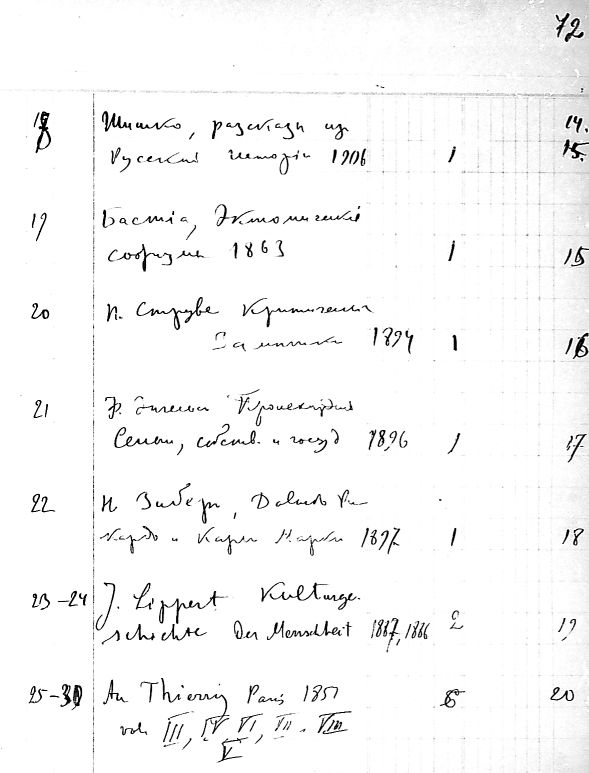 72
18 Шишко, разсказы из 14.
Русской истории 1906 1 15.
19 Бастіа, Экономическіе
софизмы 1863 1 15
20 П. Струве Критическія
Заметки 1894 1 16
21 Ф. Энгельс Происхожденіе
Семьи, собств. и госуд 1896 1 17
22 Н Зибер, Давид Ри-
кардо и Карл Маркс 1897 1 18
23-24 J. Lippert Kulturge-
schichte der Menschheit 1887, 1886 2 19
25-30 Au Thierry Paris 1851 6 20
vol. III, IV, VI, VII. VIII
V